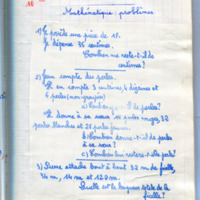 Mathématique : problèmes
1) Je possède une pièce de 1F.
Je dépense 35 centimes.
Combien me reste-t-il de
centimes ?
2) Jean compte des perles.
Il en compte 3 centaines, 4 dizaines et
6 perles
a) Combien de perles ?
Il donne à sa soeur rouges, 32
perles blanches et 28 perles jaunes.
b) Combien donne-t-il de perles
à sa soeur ?
c) Combien lui reste-t-il de perles ?
3) Pierre attache bout à bout 32 m de ficelle,
14 m et 128 m.
Quelle est la longueur totale de la
ficelle ?